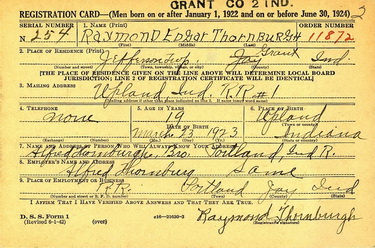 GRANT CO 2 IND.
REGISTRATION CARD—(Men born on or after January 1, 1922 and on or before June 30, 1924)
SERIAL NUMBER 1. NAME (Print) ORDER NUMBER
N 254 Raymond Edgar Thornburgh 11872
(First) (Middle) (Last)
2. PLACE OF RESIDENCE (Print)
Jefferson Grant Ind.
(Number and street) (Town, township, village, or city) (County) (State)
[THE PLACE OF RESIDENCE GIVEN ON THE LINE ABOVE WILL DETERMINE LOCAL BOARD JURISDICTION; LINE 2 OF REGISTRATION CERTIFICATE WILL BE IDENTICAL]
3. MAILING ADDRESS
Upland Ind. R.R. #1
4. TELEPHONE 5. AGE IN YEARS 6. PLACE OF BIRTH
none 19 Upland
DATE OF BIRTH
March 23 1923 Indiana
(Exchange) (Number) (Mo.) (Day) (Yr.) (State or country)
7. NAME AND ADDRESS OF PERSON WHO WILL ALWAYS KNOW YOUR ADDRESS
Alfred Thornburg Bro. Portland, Ind R.
8. EMPLOYER'S NAME AND ADDRESS
Alfred Thornburg Same
9. PLACE OF EMPLOYMENT OR BUSINESS
R.R. Portland Jay Ind
(Number and street or R. F. D. number) (Town) (County) (State)
I AFFIRM THAT I HAVE VERIFIED ABOVE ANSWERS AND THAT THEY ARE TRUE.
D. S. S. Form 1
(Revised 6-1-42) (over)
Raymond Thornburgh